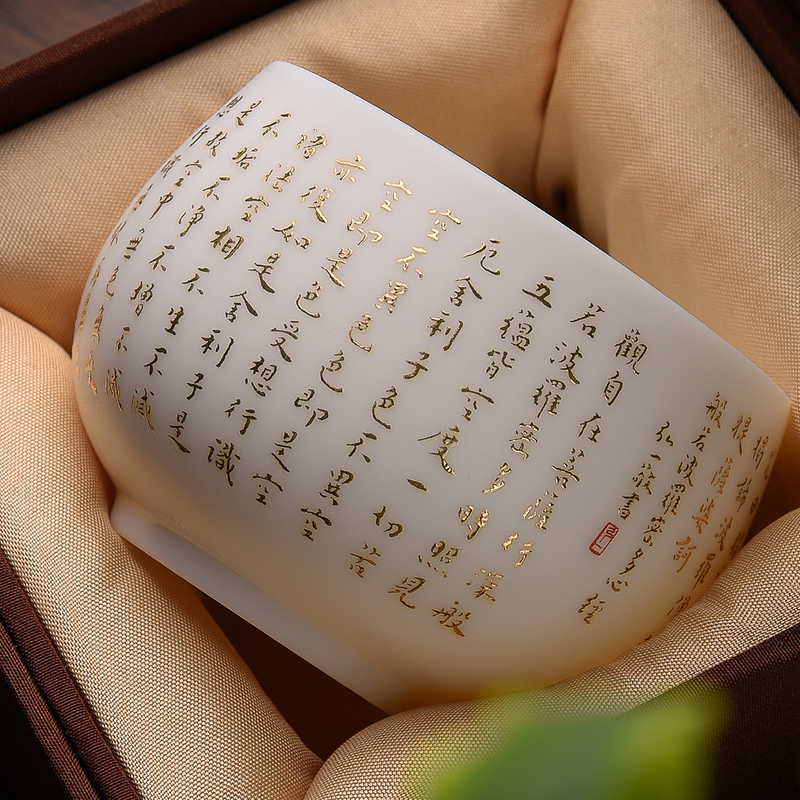 提薩婆訶
般若波羅密多心經
弘一敬書
觀自在菩薩行深般
若波羅密多時照見
五蘊皆空度一切苦
厄舍利子色不異空
空不異色色即是空
空即是色受想行識
亦復如是舍利子是
諸法空相不生不滅
不垢不淨不增不滅
是故空中無色無受
想行識